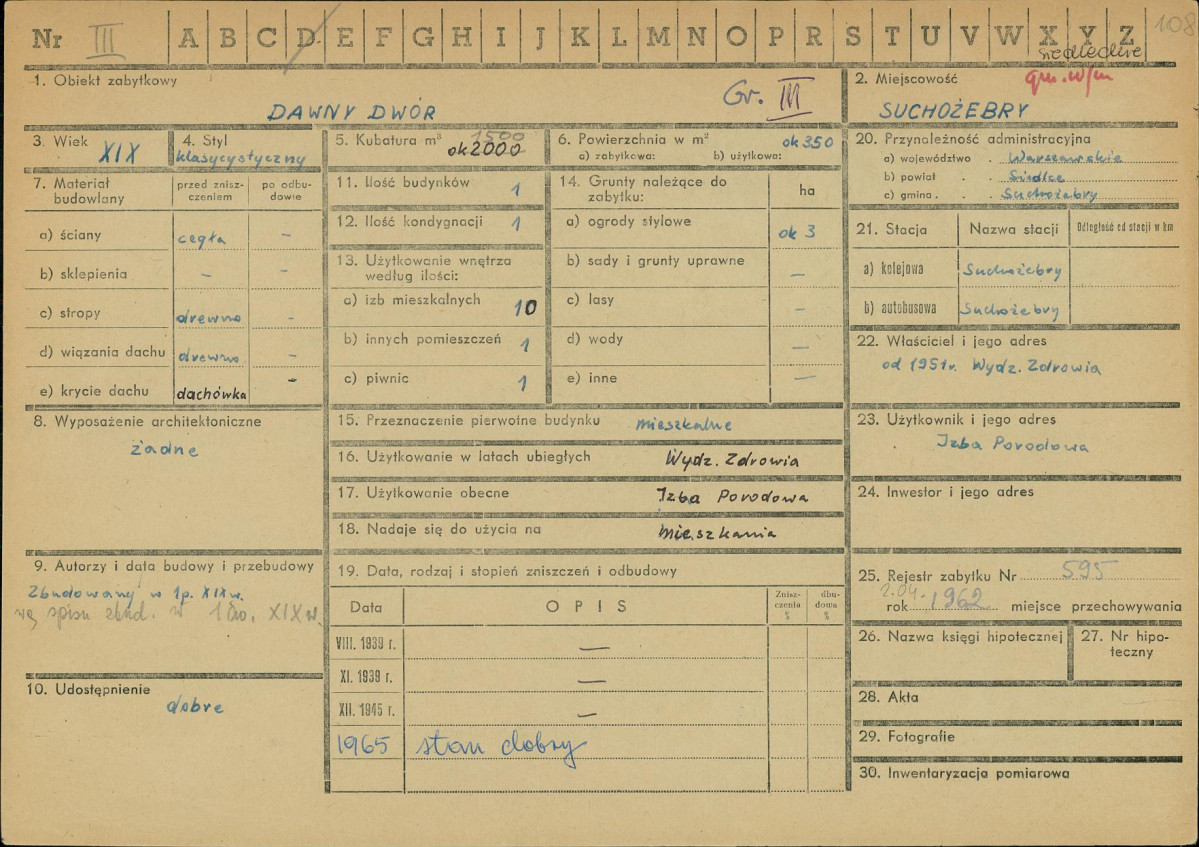 Nr III A B C D E F G H I J K L M N O P R S T U V W X Y Z 108
siedleckie
1. Obiekt zabytkowy
DAWNY DWÓR
Gr. III
2. Miejscowość
SUCHOŻEBRY
3. Wiek
XIX
4. Styl
klasycystyczny
5. Kubatura m³ 1500
ok 2000
6. Powierzchnia w m² ok 350
a) zabytkowa: b) użytkowa:
20. Przynależność administracyjna
a) województwo . Warszawskie
b) powiat . . Siedlce
c) gmina . . . Suchożebry
7. Materiał budowlany
przed zniszczeniem
po odbudowie
a) ściany cegła –
b) sklepienia – –
c) stropy drewno –
d) wiązania dachu drewno –
e) krycie dachu dachówka –
11. Ilość budynków 1
12. Ilość kondygnacji 1
13. Użytkowanie wnętrza
według ilości:
a) izb mieszkalnych 10
b) innych pomieszczeń 1
c) piwnic 1
14. Grunty należące do
zabytku:
ha
a) ogrody stylowe ok 3
b) sady i grunty uprawne –
c) lasy –
d) wody –
e) inne –
21. Stacja Nazwa stacji Odległość od stacji w km
a) kolejowa Suchożebry
b) autobusowa Suchożebry
22. Właściciel i jego adres
od 1951r. Wydz. Zdrowia
8. Wyposażenie architektoniczne
żadne
15. Przeznaczenie pierwotne budynku mieszkalne
16. Użytkowanie w latach ubiegłych Wydz. Zdrowia
17. Użytkowanie obecne Izba Porodowa
18. Nadaje się do użycia na mieszkania
23. Użytkownik i jego adres
Izba Porodowa
24. Inwestor i jego adres
9. Autorzy i data budowy i przebudowy
Zbudowany w 1p. XIX w.
wg spisu zbud. w XIX w.
10. Udostępnienie
dobre
19. Data, rodzaj i stopień zniszczeń i odbudowy
Data OPIS Zniszczenia % dbudowa %
VIII. 1939 r. –
XI. 1939 r. –
XII. 1945 r. –
1965 stan dobry
25. Rejestr zabytku Nr 595
2.04.
rok 1962 miejsce przechowywania
26. Nazwa księgi hipotecznej
27. Nr hipoteczny
28. Akta
29. Fotografie
30. Inwentaryzacja pomiarowa